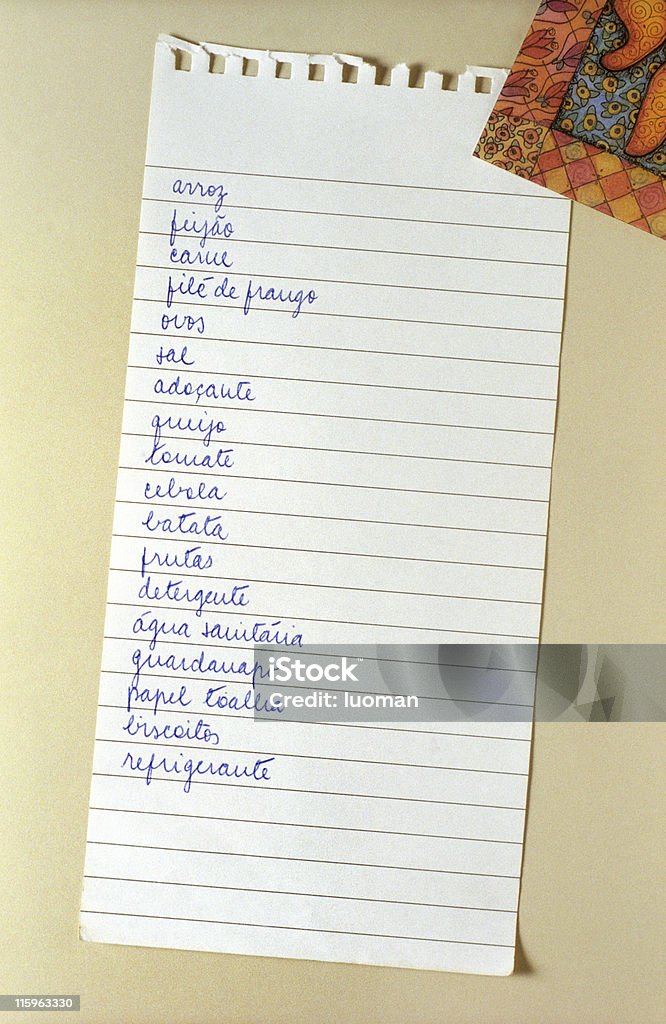 arroz
feijão
carne
filé de frango
ovos
sal
adoçante
queijo
tomate
cebola
batata
frutas
detergente
água sanitária
guardanapo
papel toalha
biscoitos
refrigerante
iStock
Credit: luoman
115963330